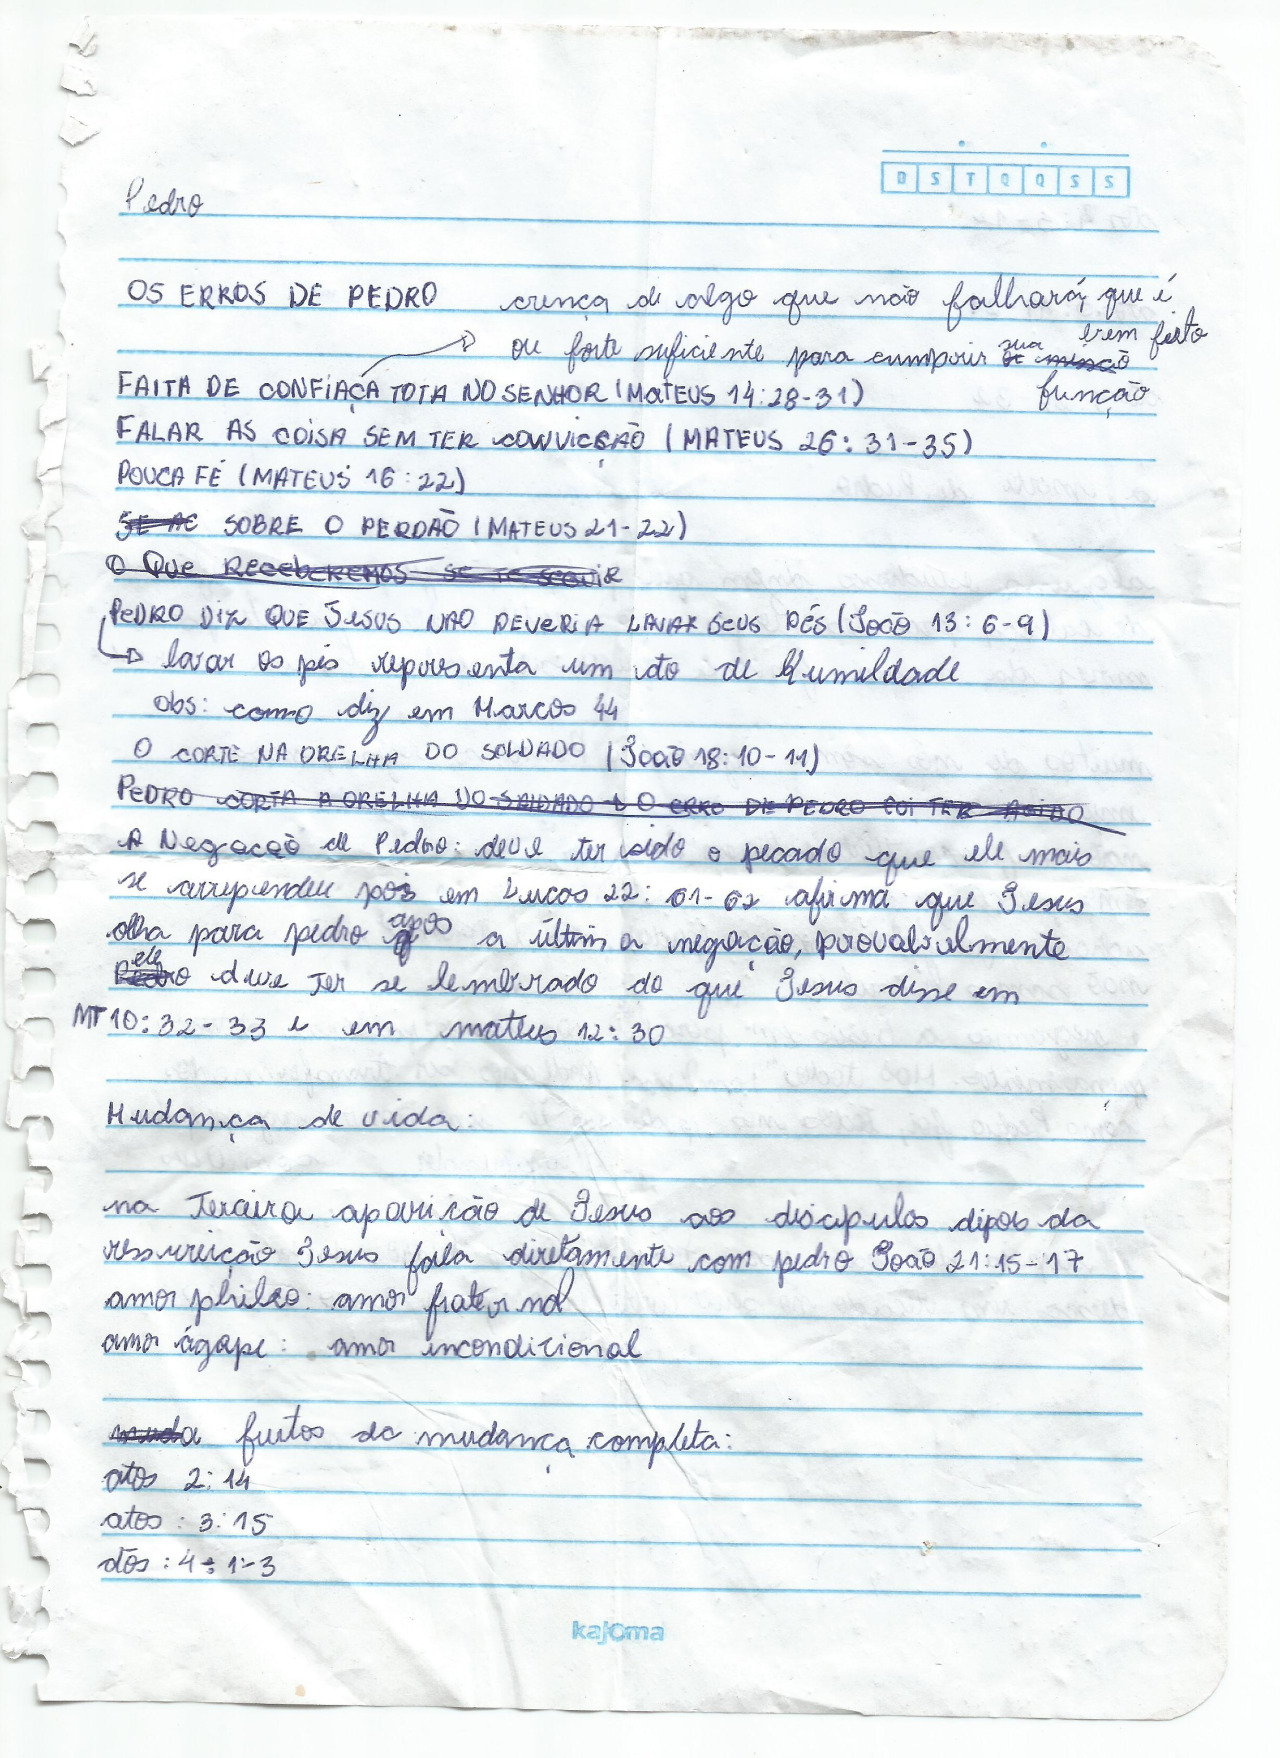 D S T Q Q S S
Pedro
OS ERROS DE PEDRO crença de algo que não falhará, que é
bem feito
ou forte suficiente para cumprir sua
função
FAITA DE CONFIAÇA TOTA NO SENHOR (MATEUS 14:28-31)
FALAR AS COISA SEM TER CONVICÇÃO (MATEUS 26: 31-35)
POUCA FÉ (MATEUS 16:22)
SE AC SOBRE O PERDÃO (MATEUS 21-22)
O QUE RECEBEREMOS SE TE SEGUIR
PEDRO DIZ QUE JESUS NÃO DEVERIA LAVAR SEUS PÉS (João 13: 6-9)
lavar os pés representa um ato de Humildade
obs: como diz em Marcos 44
O CORTE NA ORELHA DO SOLDADO (João 18:10-11)
PEDRO CORTA A ORELHA DO SALDADO O ERRO DE PEDRO FOI TER AGIDO
A Negação de Pedro: deve ter sido o pecado que ele mais
se arrependeu pois em Lucas 22: 61-62 afirma que Jesus
olha para pedro apos a última negação, provalvelmente
ele deve Ter se lembrado do que Jesus disse em
MT 10:32-33 e em mateus 12:30
Mudança de vida:
na Terceira aparição de Jesus aos discipulos dipois da
ressureição Jesus fala diretamente com pedro João 21:15-17
amor phileo: amor fraternal
amor ágape: amor incondicional
muda furtos da mudança completa:
atos 2:14
atos : 3:15
atos : 4:1-3
kajoma